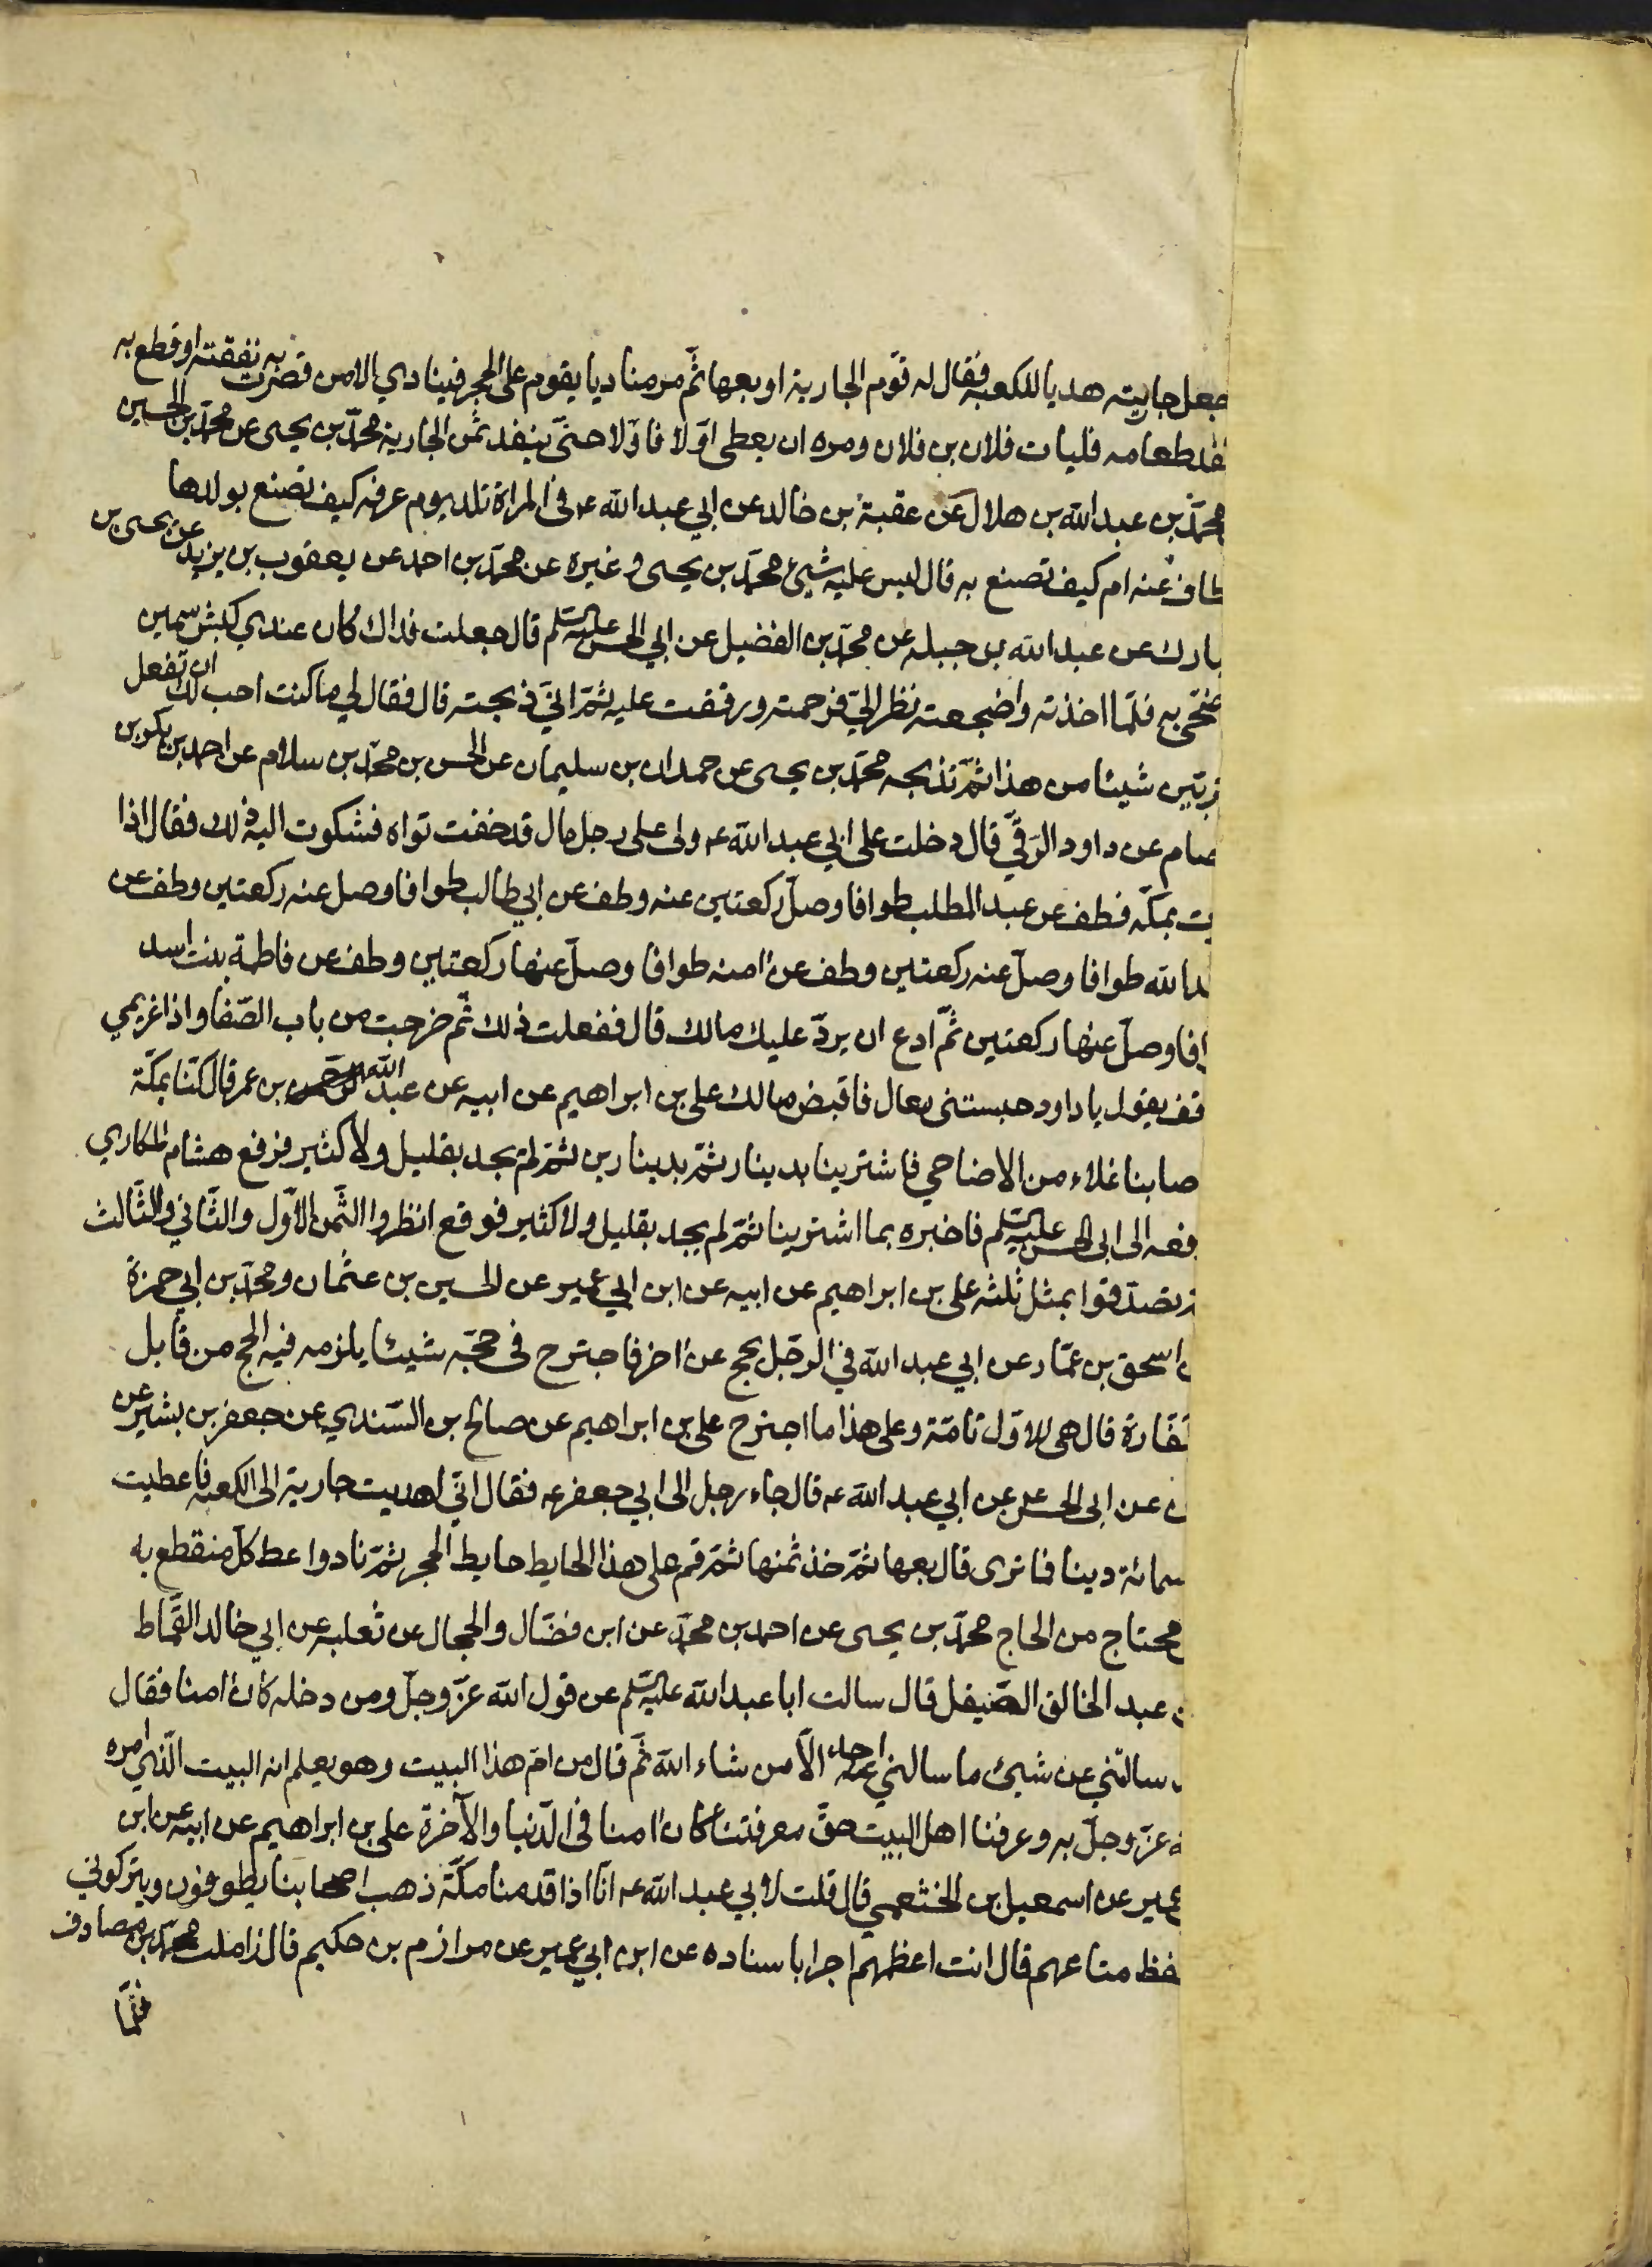 جعل جاريته هديا للكعبة فقال له قوّم الجارية او بعها ثمّ مر مناديا يقوم على الحجر فينادي الا من قصرت به نفقته او قطع به
نفد طعامه فليات فلان بن فلان ومره ان يعطى اوّلا فاوّلا حتّى ينفد ثمن الجارية محمّد بن يحيى عن محمّد بن الحسين
محمّد بن عبد الله بن هلال عن عقبة بن خالد عن ابي عبد الله ع في المراة تلد يوم عرفه كيف تصنع بولدها
يطاف عنه ام كيف تصنع به قال ليس عليه شيئ محمّد بن يحيى و غيره عن محمّد بن احمد عن يعقوب بن يزيد عن يحيى بن
بارك عن عبد الله بن جبله عن محمّد بن الفضيل عن ابي الحسن عليه السلم قال جعلت فداك كان عندي كبش سمين
ضحّي به فلمّا اخذته واضجعته نظر اليّ فرحمته ورققت عليه ثمّ انّي ذبحته قال فقال لي ما كنت احب لك ان تفعل
تربّين شيئا من هذا ثمّ تذبحه محمّد بن يحيى عن حمدان بن سليمان عن الحسن بن محمّد بن سلام عن احمد بن بكر بن
عصام عن داود الرقّي قال دخلت على ابي عبد الله ع ولى على رجل مال قد خفت تواه فشكوت اليه ذلك فقال اذا
ت بمكّه فطف عن عبد المطلب طوافا وصلّ ركعتين عنه وطف عن ابي طالب طوافا وصل عنه ركعتين وطف عن
بد الله طوافا وصلّ عنه ركعتين وطف عن امنه طوافا وصلّ عنها ركعتين وطف عن فاطمة بنت اسد
افا وصلّ عنها ركعتين ثمّ ادع ان يردّ عليك مالك قال ففعلت ذلك ثمّ خرجت من باب الصّفا واذا غريمي
قف يقول يا داود حبستنى تعال فاقبض مالك على بن ابراهيم عن ابيه عن عبد الله بن عمر قال كنّا بمكّة
صابنا غلاء من الاضاحي فاشترينا بدينار ثمّ بدينارين ثمّ لم يجد بقليل ولا كثير فرفع هشام المكاري
فعه الى ابى الحسن عليه السلم فاخبره بما اشترينا ثمّ لم يجد بقليل ولا كثير فوقع انظروا الثّمن الاوّل والثّاني والثّالث
تصدّقوا بمثل ثلثه على بن ابراهيم عن ابيه عن ابن ابي عمير عن الحسين بن عثمان ومحمّد بن ابي حمزة
ن اسحق بن عمّار عن ابي عبد الله في الرّجل يحج عن اخر فاجترح فى حجّه شيئا يلزمه فيه الحج من قابل
كفّارة قال هى للاوّل تامّة وعلى هذا ما اجترح على بن ابراهيم عن صالح بن السّندي عن جعفر بن بشير عن
ن عن ابى الحسن عن ابي عبد الله ع قال جاء رجل الى ابي جعفر ع فقال انّي اهديت جارية الى الكعبه فاعطيت
سمائة دينا فما ترى قال بعها ثمّ خذ ثمنها ثمّ قم على هذا الحايط حايط الحجر ثمّ ناد واعط كلّ منقطع به
محتاج من الحاج محمّد بن يحيى عن احمد بن محمّد عن ابن فضّال والحجال عن ثعلبه عن ابي خالد القمّاط
ن عبد الخالق الصّيقل قال سالت ابا عبد الله عليه السلم عن قول الله عزّ وجلّ ومن دخله كان امنا فقال
سالتني عن شيئ ما سالنى عنه احد الّا من شاء الله ثمّ قال من امّ هذا البيت وهو يعلم انه البيت الّذي امره
ه عزّ وجلّ به وعرفنا اهل البيت حقّ معرفتنا كان امنا في الدّنيا والآخرة على بن ابراهيم عن ابيه عن ابن
عمير عن اسمعيل بن الخثعمي قال قلت لابي عبد الله ع انّا اذا قدمنا مكّة ذهب اصحابنا يطوفون ويتركونى
حفظ متاعهم قال انت اعظمهم اجرا باسناده عن ابن ابي عمير عن مرازم بن حكيم قال زاملت محمّد بن مصادف
فلمّا